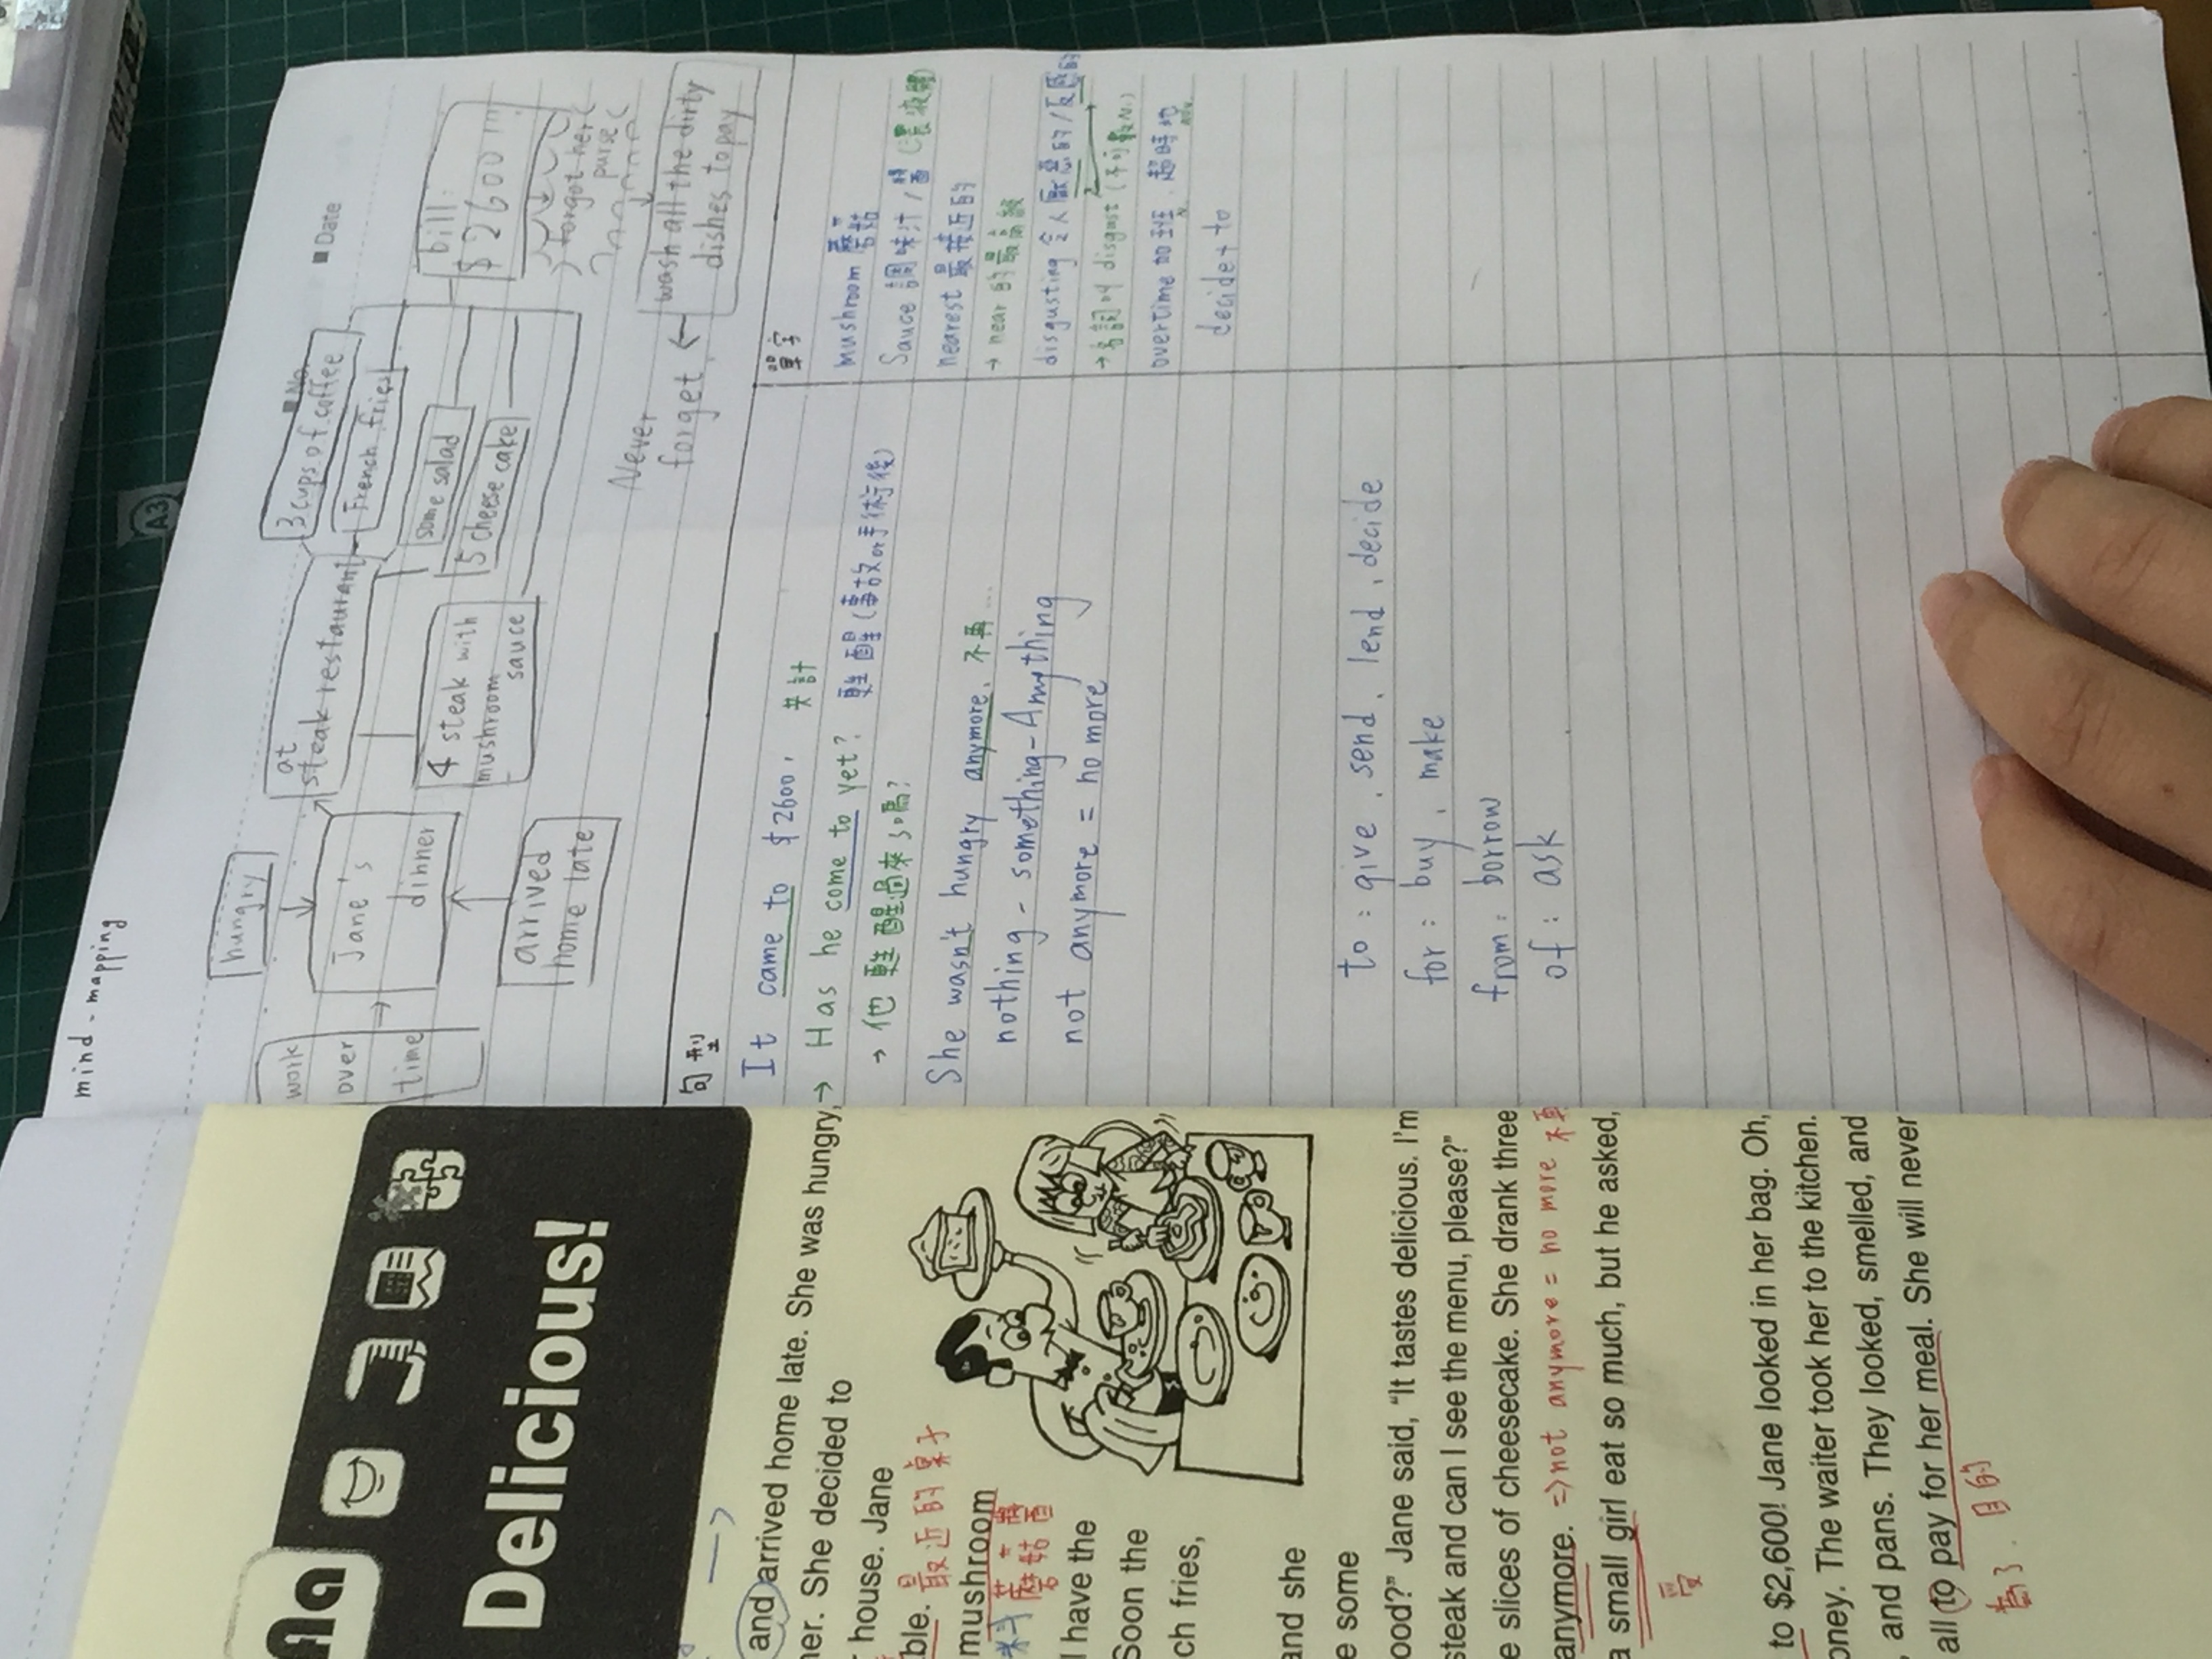 mind - mapping
No.
Date
work
over
time
hungry
Jane's
dinner
arrived
home late
at
steak restaurant
4 steak with
mushroom
sauce
3 cups of coffee
French fries
some salad
5 cheese cake
bill:
$2600!!!
forgot her
purse
wash all the dirty
dishes to pay
Never
forget
句型
It came to $2600. 共計
→ Has he come to yet? 甦醒(事故or手術後)
→ 他甦醒過來了嗎?
She wasn't hungry anymore. 不再...
nothing - something - Anything
not anymore = no more
to : give, send, lend, decide
for : buy, make
from : borrow
of : ask
單字
mushroom 蘑菇
Sauce 調味汁/醬
nearest 最接近的
→ near 的最高級
disgusting 令人厭惡的/反感的
→ 名詞 of disgust (不可數N.)
overtime 加班, 超時地
decide + to
Delicious!
and arrived home late. She was hungry,
ner. She decided to
house. Jane
ble. 最近的桌子
mushroom
蘑菇醬
I have the
Soon the
ch fries,
and she
e some
ood?" Jane said, "It tastes delicious. I'm
steak and can I see the menu, please?"
e slices of cheesecake. She drank three
anymore. ⇒ not anymore = no more 不再
a small girl eat so much, but he asked,
to $2,600! Jane looked in her bag. Oh,
oney. The waiter took her to the kitchen.
, and pans. They looked, smelled, and
all to pay for her meal. She will never
為了. 目的